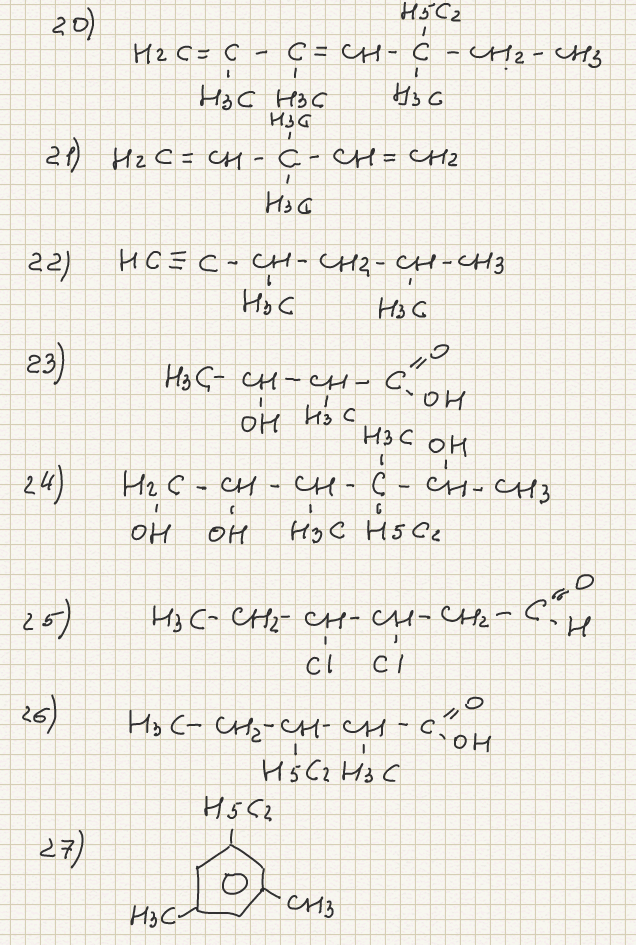 H5C2
20) H2C = C - C = CH - C - CH2 - CH3
H3C H3C H3C
H3C
21) H2C = CH - C - CH = CH2
H3C
22) HC ≡ C - CH - CH2 - CH - CH3
H3C H3C
O
23) H3C - CH - CH - C
OH
OH H3C
H3C OH
24) H2C - CH - CH - C - CH - CH3
OH OH H3C H5C2
O
25) H3C - CH2 - CH - CH - CH2 - C
H
Cl Cl
O
26) H3C - CH2 - CH - CH - C
OH
H5C2 H3C
H5C2
27)
H3C CH3